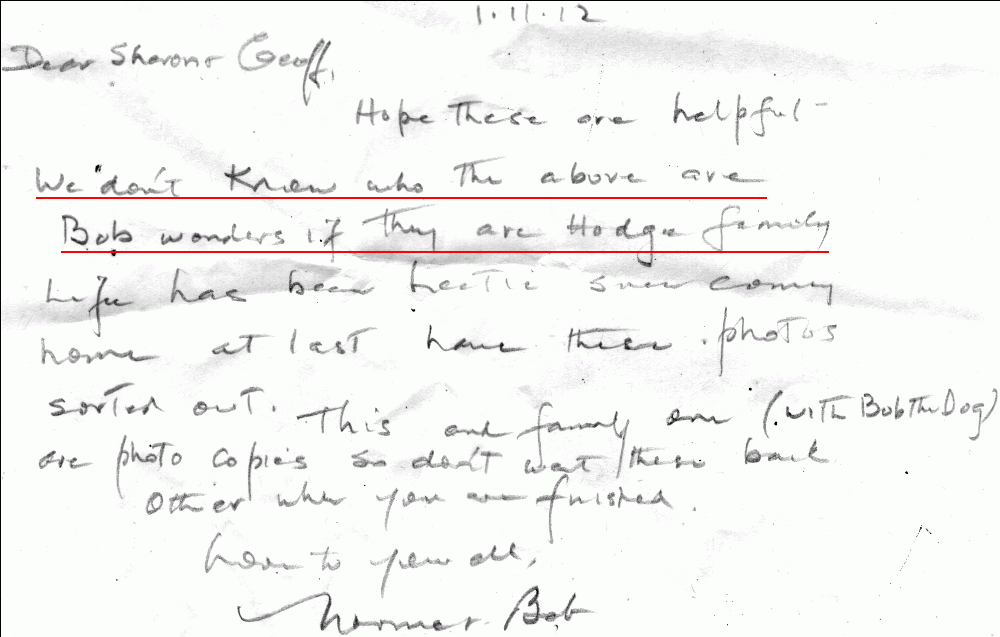 1.11.12
Dear Sharon + Geoff,
Hope these are helpful -
We don't know who the above are
Bob wonders if they are Hodge family
Life has been hectic since coming
home at last have these photos
sorted out.
This and family one (with Bob the Dog)
are photo copies so don't want these back
Other when you are finished.
Love to you all,
Bob